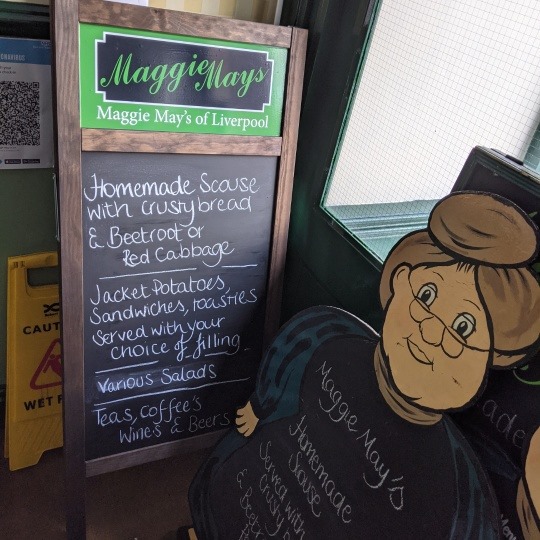 Maggie Mays
Maggie May's of Liverpool
Homemade Scouse
with crusty bread
& Beetroot or
Red Cabbage
Jacket Potatoes,
Sandwiches, toasties
Served with your
choice of filling
Various Salads
Teas, coffee's
Wine's & Beers
CAUT
WET F
Maggie May's
Homemade
Scouse
Served with
Crusty
& Beetr